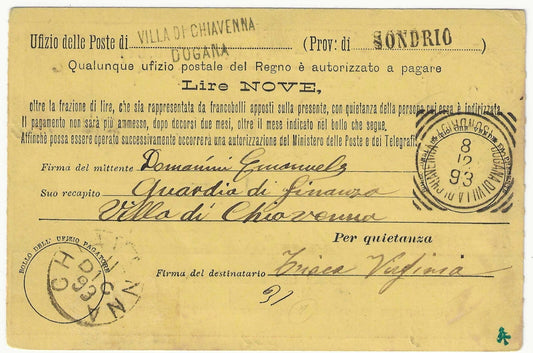 Ufizio delle Poste di VILLA DI CHIAVENNA DOGANA (Prov: di SONDRIO)
Qualunque ufizio postale del Regno è autorizzato a pagare
Lire NOVE,
oltre la frazione di lire, che sia rappresentata da francobolli apposti sulla presente, con quietanza della persona cui esse è indirizzata.
Il pagamento non sarà più ammesso, dopo decorsi due mesi, oltre il mese indicato nel bollo che segue.
Affinchè possa essere operato successivamente occorrerà una autorizzazione del Ministero delle Poste e dei Telegrafi
8
12
93
DOGANA DI VILLA DI CHIAVENNA
Firma del mittente Domanini Emanuele
Suo recapito Guardia di finanza
Villa di Chiavenna
Per quietanza
BOLLO DELL' UFIZIO PAGATORE
DIC
93
Firma del destinatario Virginia